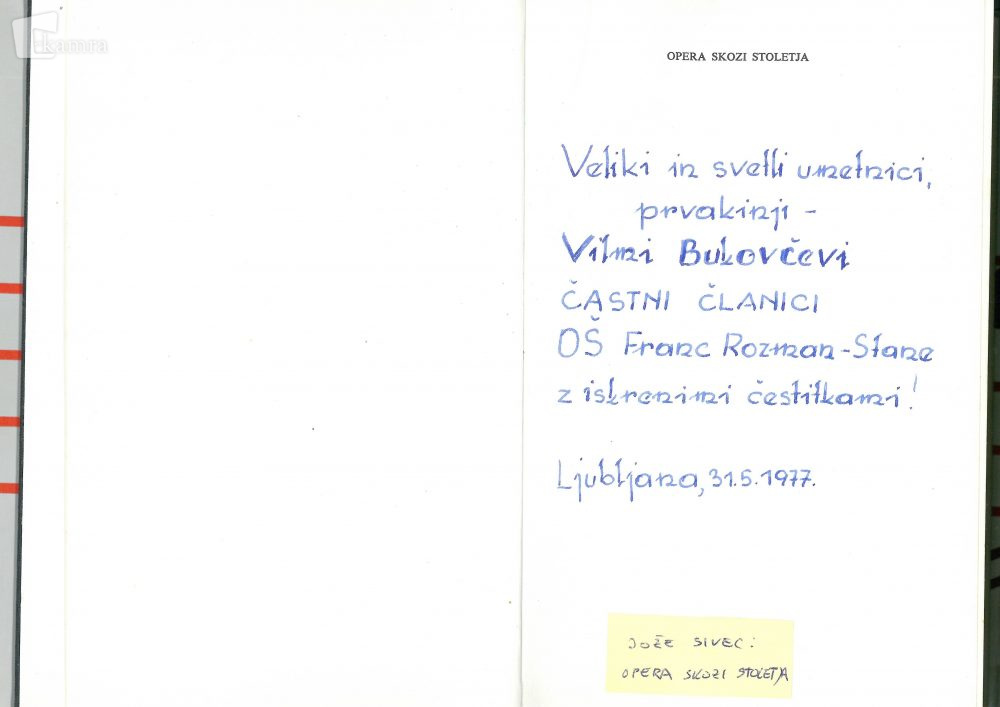 kamra
OPERA SKOZI STOLETJA
Veliki in svetli umetnici,
prvakinji -
Vilmi Bukovčevi
ČASTNI ČLANICI
OŠ Franc Rozman-Stane
z iskrenimi čestitkami!
Ljubljana, 31.5.1977.
JOŽE SIVEC:
OPERA SKOZI STOLETJA